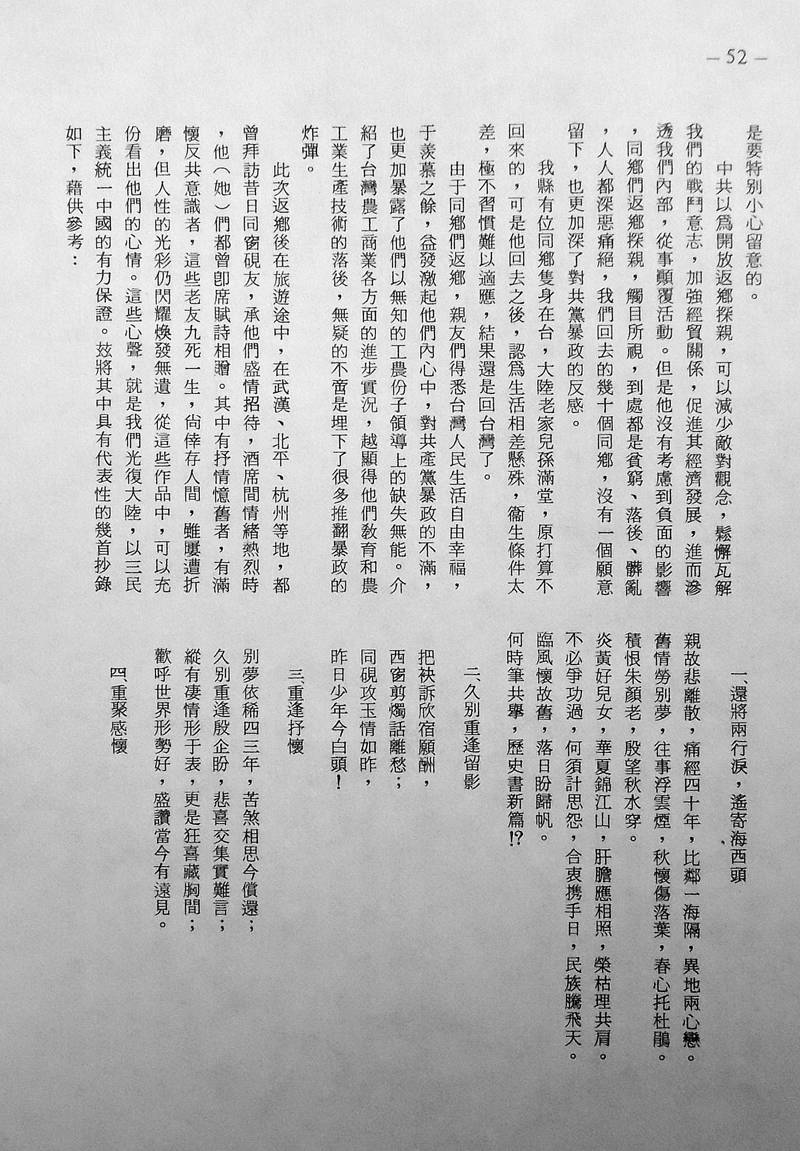 — 52 —
是要特別小心留意的。
中共以爲開放返鄉探親，可以減少敵對觀念，鬆懈瓦解
我們的戰鬥意志，加強經貿關係，促進其經濟發展，進而滲
透我們內部，從事顚覆活動。但是他沒有考慮到負面的影響
，同鄉們返鄉探親，觸目所視，到處都是貧窮、落後、髒亂
，人人都深惡痛絕，我們回去的幾十個同鄉，沒有一個願意
留下，也更加深了對共黨暴政的反感。
我縣有位同鄉隻身在台，大陸老家兒孫滿堂，原打算不
回來的，可是他回去之後，認爲生活相差懸殊，衞生條件太
差，極不習慣難以適應，結果還是回台灣了。
由于同鄉們返鄉，親友們得悉台灣人民生活自由幸福，
于羨慕之餘，益發激起他們內心中，對共產黨暴政的不滿，
也更加暴露了他們以無知的工農份子領導上的缺失無能。介
紹了台灣農工商業各方面的進步實況，越顯得他們敎育和農
工業生產技術的落後，無疑的不啻是埋下了很多推翻暴政的
炸彈。
此次返鄉後在旅遊途中，在武漢、北平、杭州等地，都
曾拜訪昔日同窗硯友，承他們盛情招待，酒席間情緒熱烈時
，他（她）們都曾卽席賦詩相贈。其中有抒情憶舊者，有滿
懷反共意識者，這些老友九死一生，尙倖存人間，雖屢遭折
磨，但人性的光彩仍閃耀煥發無遺，從這些作品中，可以充
份看出他們的心情。這些心聲，就是我們光復大陸，以三民
主義統一中國的有力保證。玆將其中具有代表性的幾首抄錄
如下，藉供參考：
一、還將兩行淚，遙寄海西頭
親故悲離散，痛經四十年，比鄰一海隔，異地兩心戀。
舊情勞別夢，往事浮雲煙，秋懷傷落葉，春心托杜鵑。
積恨朱顏老，殷望秋水穿。
炎黃好兒女，華夏錦江山，肝膽應相照，榮枯理共肩。
不必爭功過，何須計思怨，合衷携手日，民族騰飛天。
臨風懷故舊，落日盼歸帆。
何時筆共擧，歷史書新篇!?
二、久別重逢留影
把袂訴欣宿願酬，
西窗剪燭話離愁；
同硯攻玉情如昨，
昨日少年今白頭！
三、重逢抒懷
別夢依稀四三年，苦煞相思今償還；
久別重逢殷企盼，悲喜交集實難言；
縱有凄情形于表，更是狂喜藏胸間；
歡呼世界形勢好，盛讚當今有遠見。
四、重聚感懷